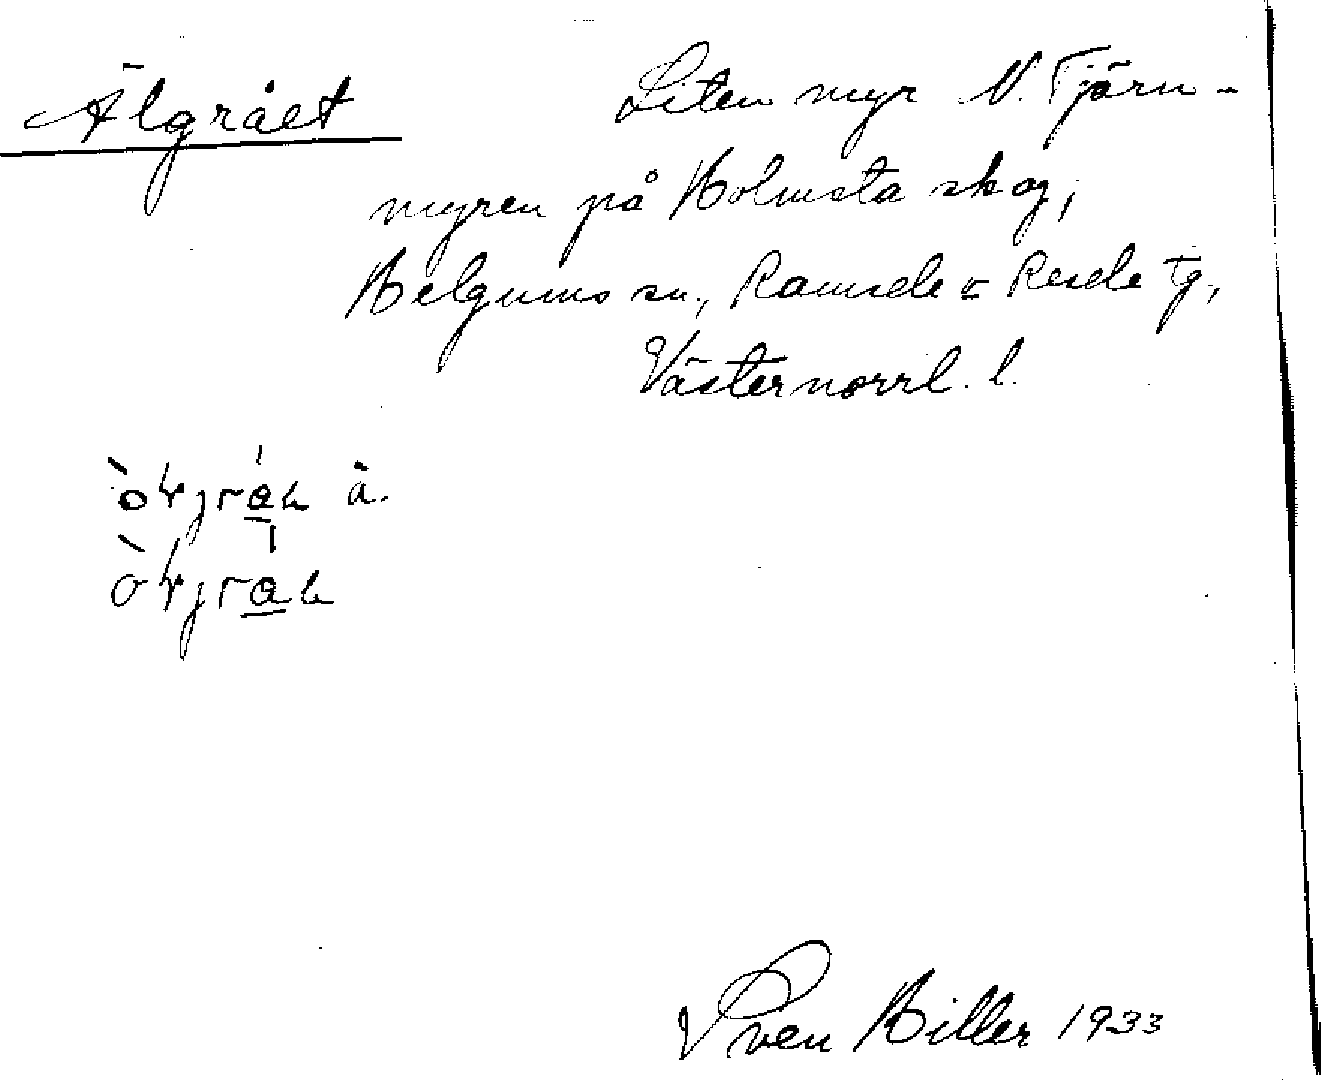 Älgrået
Liten myr N. Tjärn-
myren på Holmsta skog,
Helgums sn, Ramsele o Resele tg,
Västernorrl. l.
ä.
Sven Hiller 1933